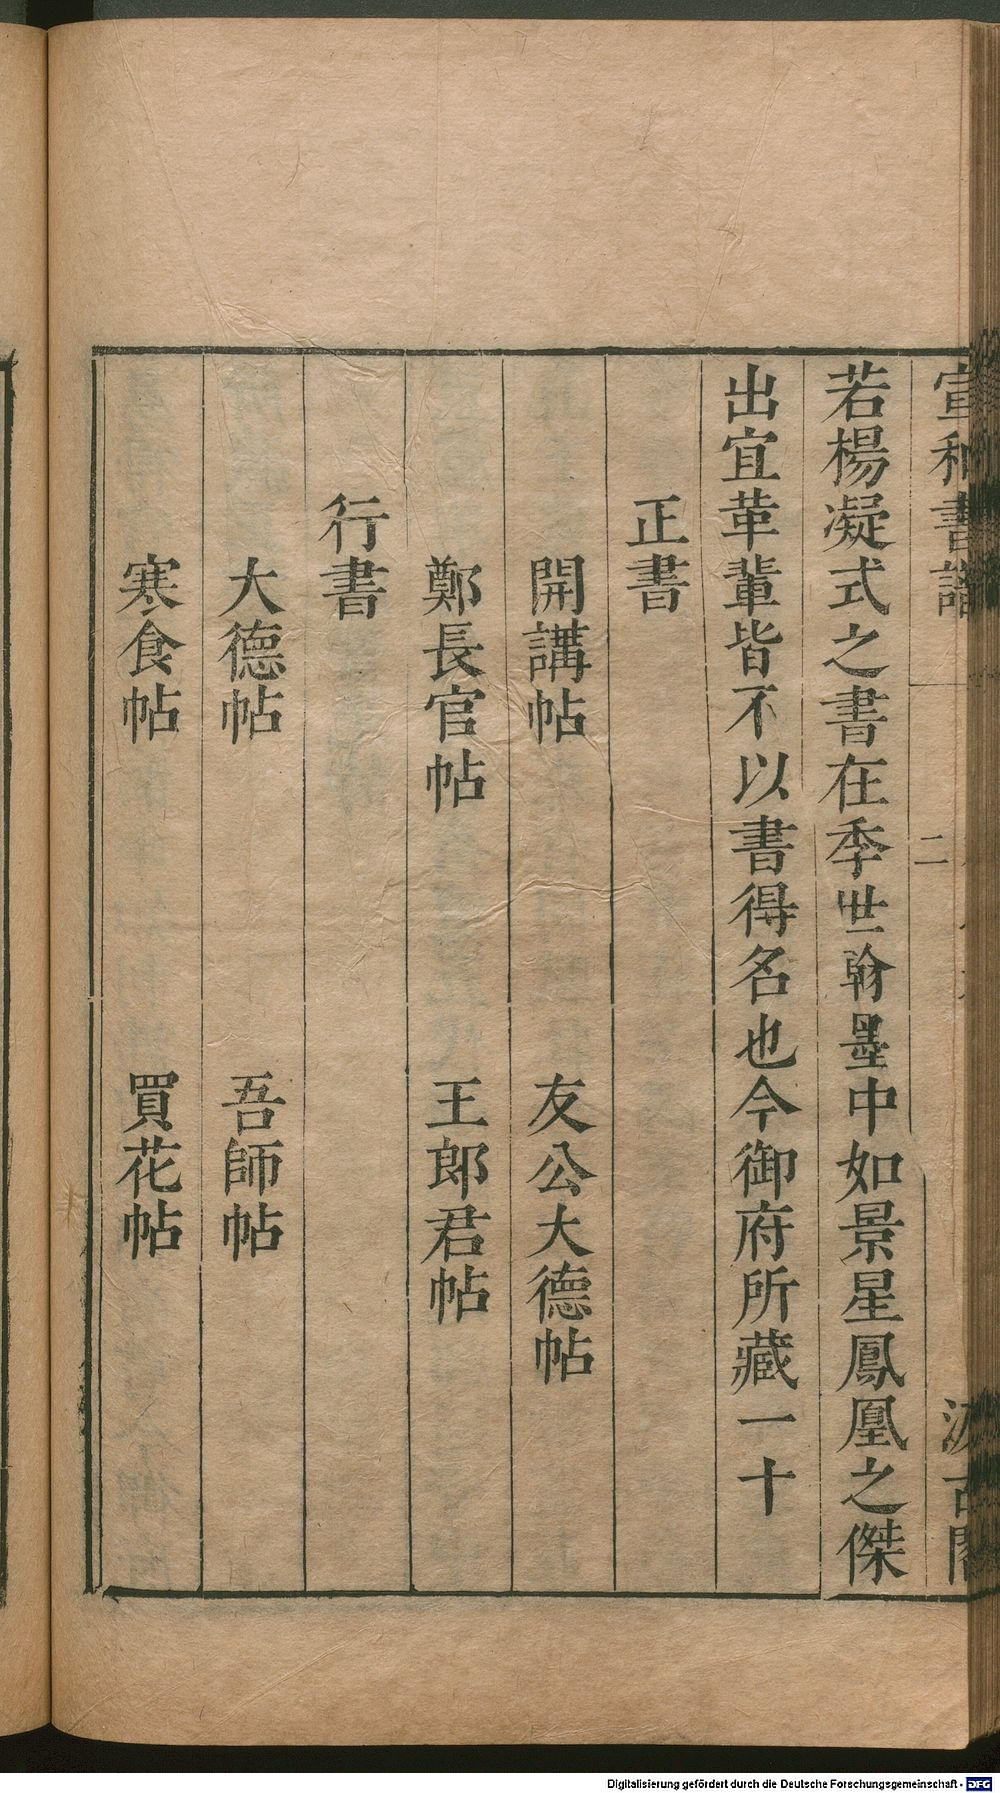 宣和書譜 二 汲古閣
若楊凝式之書在季世翰墨中如景星鳳凰之傑
出宜葦輩皆不以書得名也今御府所藏一十
正書
開講帖 友公大德帖
鄭長官帖 王郎君帖
行書
大德帖 吾師帖
寒食帖 買花帖
Digitalisierung gefördert durch die Deutsche Forschungsgemeinschaft - DFG